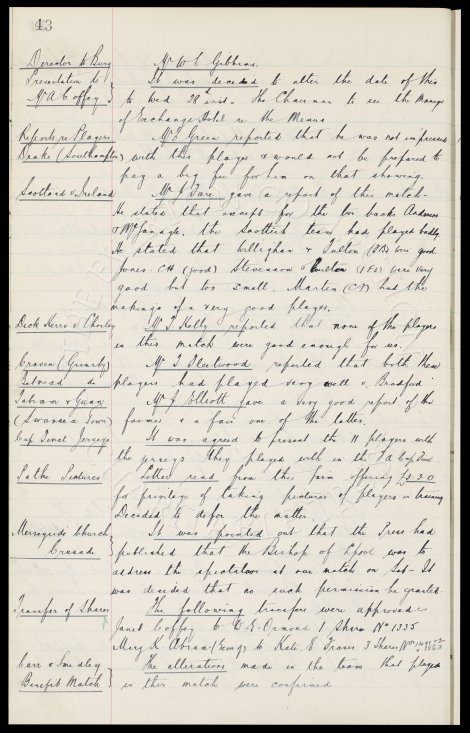 43
Director to Bury Mr W C Gibbins.
Presentation to It was decided to alter the date of this
Mr A Coffey to Wed 28th inst. The Chairman to see the Manager
of Exchange Hotel re the Menus
Reports re Players Mr Green reported that he was not impressed
Drake (Southampton) with this player & would not be prepared to
pay a big fee for him on that showing.
Scotland v. Ireland Mr gave a report of this match.
He stated that except for the two backs Anderson
& the Scottish team had played badly.
He stated that & Fulton (OB) were good.
Jones CH (good) Stevenson & (IFO) were very
good but too small. Martin (CF) had the
makings of a very good player.
Dick Kerrs v. Chorley Mr T Kelly reported that none of the players
in this match were good enough for us.
Craven (Grimsby) Mr T Fleetwood reported that both these
players had played very well v. Bradford
Mr J Elliott gave a very good report of the
(Swansea Town) former & a fair one of the latter.
Cup Final Jerseys It was agreed to present the 11 players with
the jerseys they played with in the F A Cup Final
Pathe Pictures Letter read from this firm offering £3.3.0
for privilege of taking pictures of players in training
Decided to defer the matter.
Merseyside Church It was pointed out that the Press had
Crusade published that the Bishop of Lpool was to
address the spectators at our match on Sat. It
was decided that no such permission be granted.
Transfer of Shares The following transfers were approved:
Janet Coffey to Ormond 1 Share No 1335
Mary K Abram to Kate E 3 Shares Nos
Carr & Smedley The alterations made in the team that played
Benefit Match in this match were confirmed